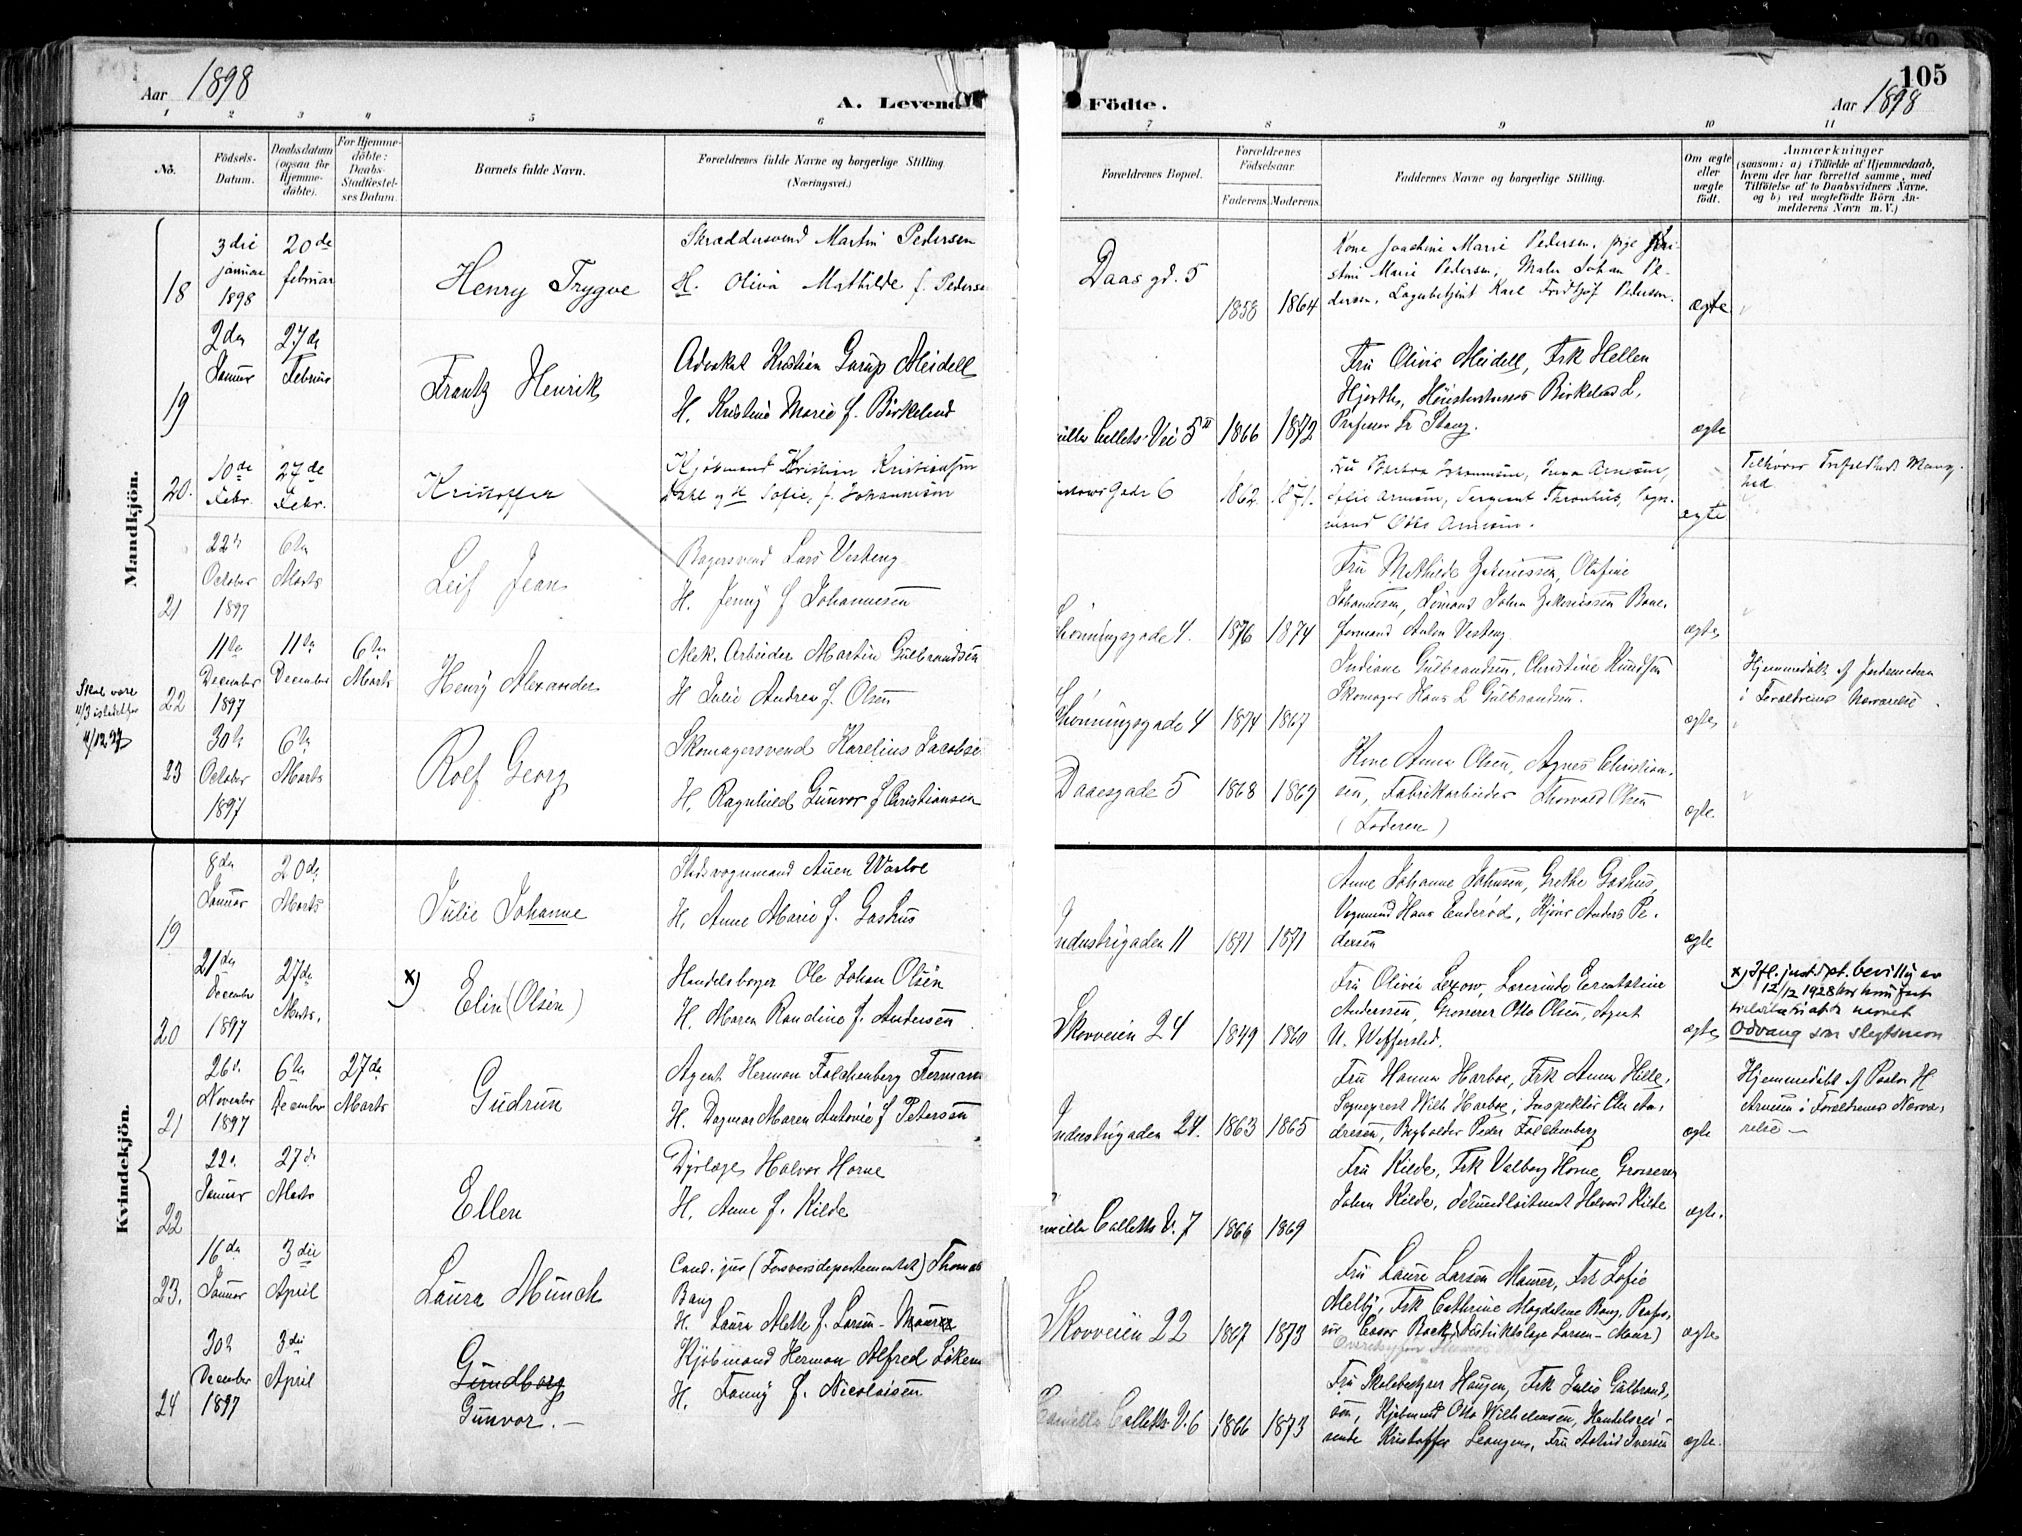 Aar 1898
A. Levende
Födte.
Aar 1898
105
1 2 3 4 5 6 7 8 9 10 11
No.
Födsels-
Datum.
Daabsdatum
(ogsaa for
Hjemme-
döbte).
For Hjemme-
döbte:
Daabs-
Stadfæstel-
ses Datum.
Barnets fulde Navn.
Forældrenes fulde Navne og borgerlige Stilling.
(Næringsvei.)
Forældrenes Bopæl.
Forældrenes
Födselsaar.
Faderens. Moderens.
Faddernes Navne og borgerlige Stilling.
Om ægte
eller
uægte
født.
Anmærkninger
(saasom: a) i Tilfælde af Hjemmedaab,
hvem der har forrettet samme, med
Tilföielse af to Daabsvidners Navne,
og b) ved uægtefödte Börn An-
melderens Navn m. V.)
Mandkjön.
18
3die
januar
1898
20de
februar
Henry Trygve
Skræddersvend Martin Pedersen
H. Oliva Mathilde f. Peders
Daas gd. 5
1858 1864
Kone Joachine Marie Pedersen, pige Kri-
stine Marie Pedersen, Maler Johan Pe-
dersen, Lagerbetjent Karl Fridtjof Pedersen.
ægte
19
2den
Januar
27de
Februar
Frantz Henrik
Advokat Kristian Garup Meidell
H. Kristine Marie f. Birkeland
Collets Vei 5 II
1866 1872
Fru Olivia Meidell, Frk Hellen
Hjorth, Birkeland
Professor Fr Stang.
ægte
20.
10de
Febr.
27de
Febr.
Kristoffer
Kjøbmand Kristian Kristiansen
Dahl og H Sofie, f. Johannesen
Gade 6
1862 187.
Sergeant
mand
ægte
Tilhører Trefoldigheds Menig-
hed
21
22de
October
1897
6te
Marts
Leif Jean
Bagersvend Lars Vesteng
H. Jenny f Johannesen
Schønningsgade 4.
1876 1874
Fru Mathilde Zakariassen, Olufine
Johannesen, Sømand Johan Zakariassen
formand Anton Vesteng
ægte
Skal være
11/3 istedetfor
11/12 97
22
11te
December
1897
11te
December
6te
Marts
Henry Alexander
Mek. Arbeider Martin Gulbrandsen
H Julie Andrea f. Olsen
Schønningsgade 4
1874 1867
Indiane Gulbrandsen, Christine Knudsen
Skomager Hans L Gulbrandsen.
ægte
Hjemmedøbt af Jordemoderen
i Forældrenes Nærværelse.
23
30te
October
1897
6te
Marts
Rolf Georg
Skomagersvend Karelius Jacobse
H. Ragnhild Gunvor f Christiansen
Daaesgade 5
1868 1869
Kone Anna Olsen, Agnes Christian-
sen, Fabrikarbeider Thorvald Olsen
(Faderen)
ægte.
Kvindekjön.
19
8de
Januar
20de
Marts
Julie Johanne
H. Anne Marie f. Gashus
Industrigaden 11
1871 1871
Anne Johanne Johnsen, Grethe Gashus,
Vognmand Hans Enderød, Anders Pe-
dersen
ægte
20
21de
December
1897
27de
Marts.
x)
Elin (Olsen)
Handelsborger Ole Johan Olsen
H. Maren Randine f. Andersen
Skovveien 24
1849 1860
Fru Olivia Lexow, Lærerinde
Anderssen, Grosserer Otto Olsen, Agent
ægte
x) Ifl. just. dpt. bevilling av
12/12 1928
navnet
Odvang som slegtsnavn
21
26de
November
1897
6te
December
27de
Marts
Gudrun
Agent Herman Falchenberg
H. Dagmar Maren Antonie f Petersen
Industrigaden 24.
1863 1865
Fru Hanna Harboe, Frk Anna Hille,
Sogneprest Wilh Harboe, Inspektør Chr An-
dresen, Bogholder Peder Falchenberg
ægte
Hjemmedøbt af Pastor H
i Forældrenes Nærvæ-
relse —
22
22de
Januar
27de
Marts
Ellen
Dyrlæge Halvor Horne
H. Anne f. Kilde
Camilla Colletts V. 7
1866 1869
Fru Kilde, Frk Valborg Horne, Grosserer
Johan Kilde, Sekundløitnant Halvard Kilde
ægte.
23.
16de
Januar
3die
April
Laura Munch
Cand. jur (Forsvarsdepartementet) Thomas
Bang
H. Laura Mette f. Larsen-Maurer
Skovveien 22
1867 1873
Fru Laura Larsen Maurer, Frk Sofie
Melby, Frk Cathrine Magdalene Bang, Profes-
sor Boeck, Distriktslæge Larsen-Maurer)
ægte
24
30te
December
1897
3die
April
Gundborg
Gunvor. —
Kjøbmand Herman Alfred Løken
H. Fanny f. Nicolaisen
Camilla Colletts V. 6
1866 1873
Fru Skolebestyrer Haugen, Frk Julie Gulbrand-
sen, Kjøbmand Otto Wilhelmsen, Handelsrei-
sende Kristoffer Leangen, Fru Astrid Iversen
ægte.